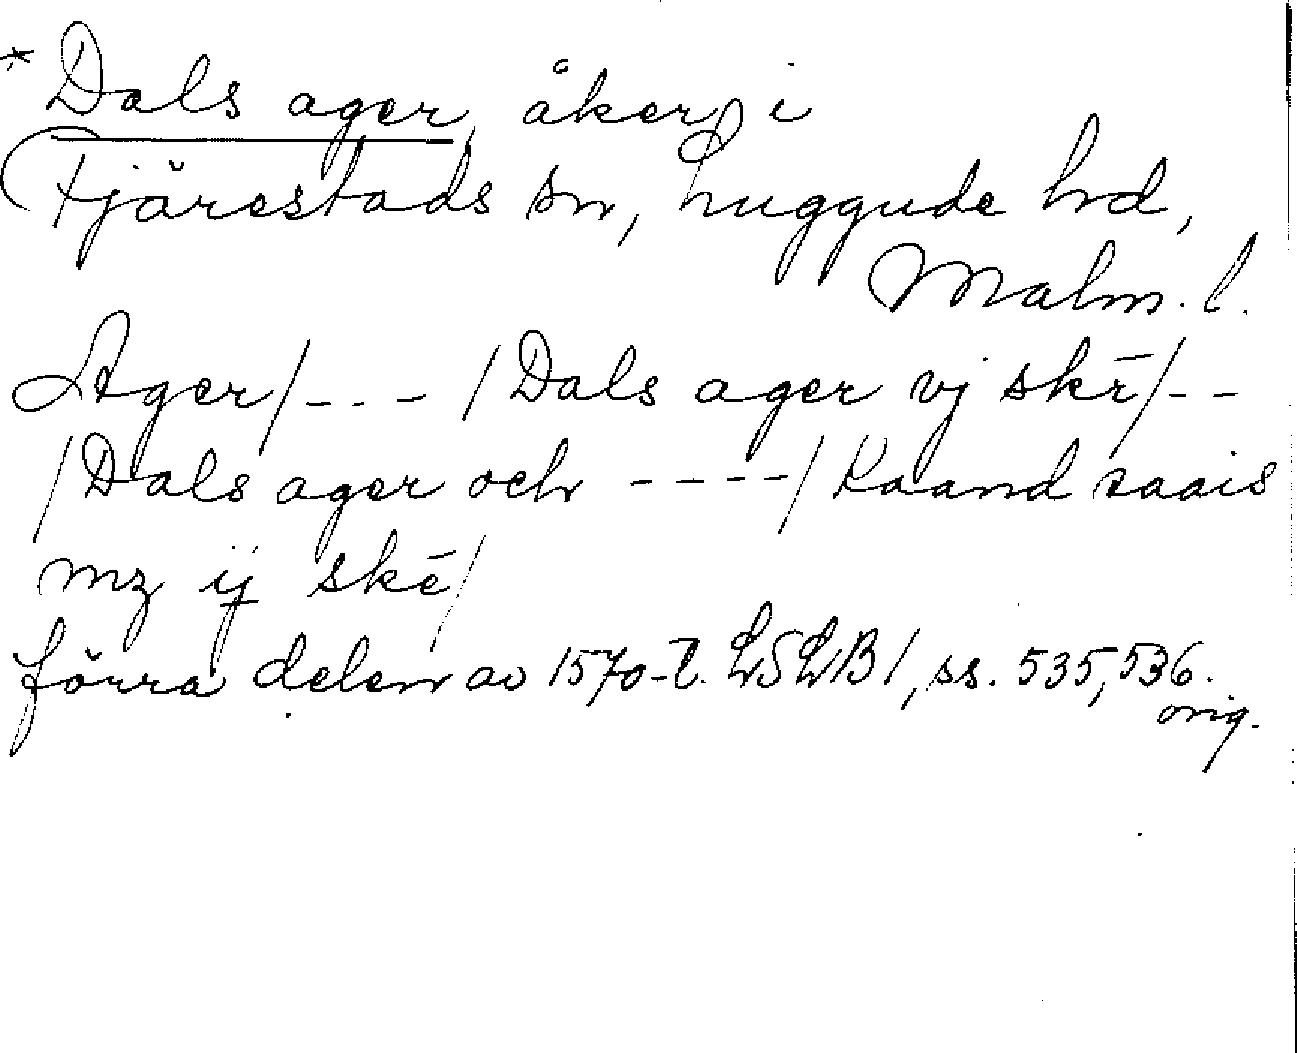 * Dals ager, åker i
Fjärestads sn, Luggude hd,
Malm. l.
Ager/--- /Dals ager vj skē/--
/Dals ager och ----/ Raand saais
mz ij skē/
förra delen av 1570-t. LSLB1, ss. 535, 536.
orig.